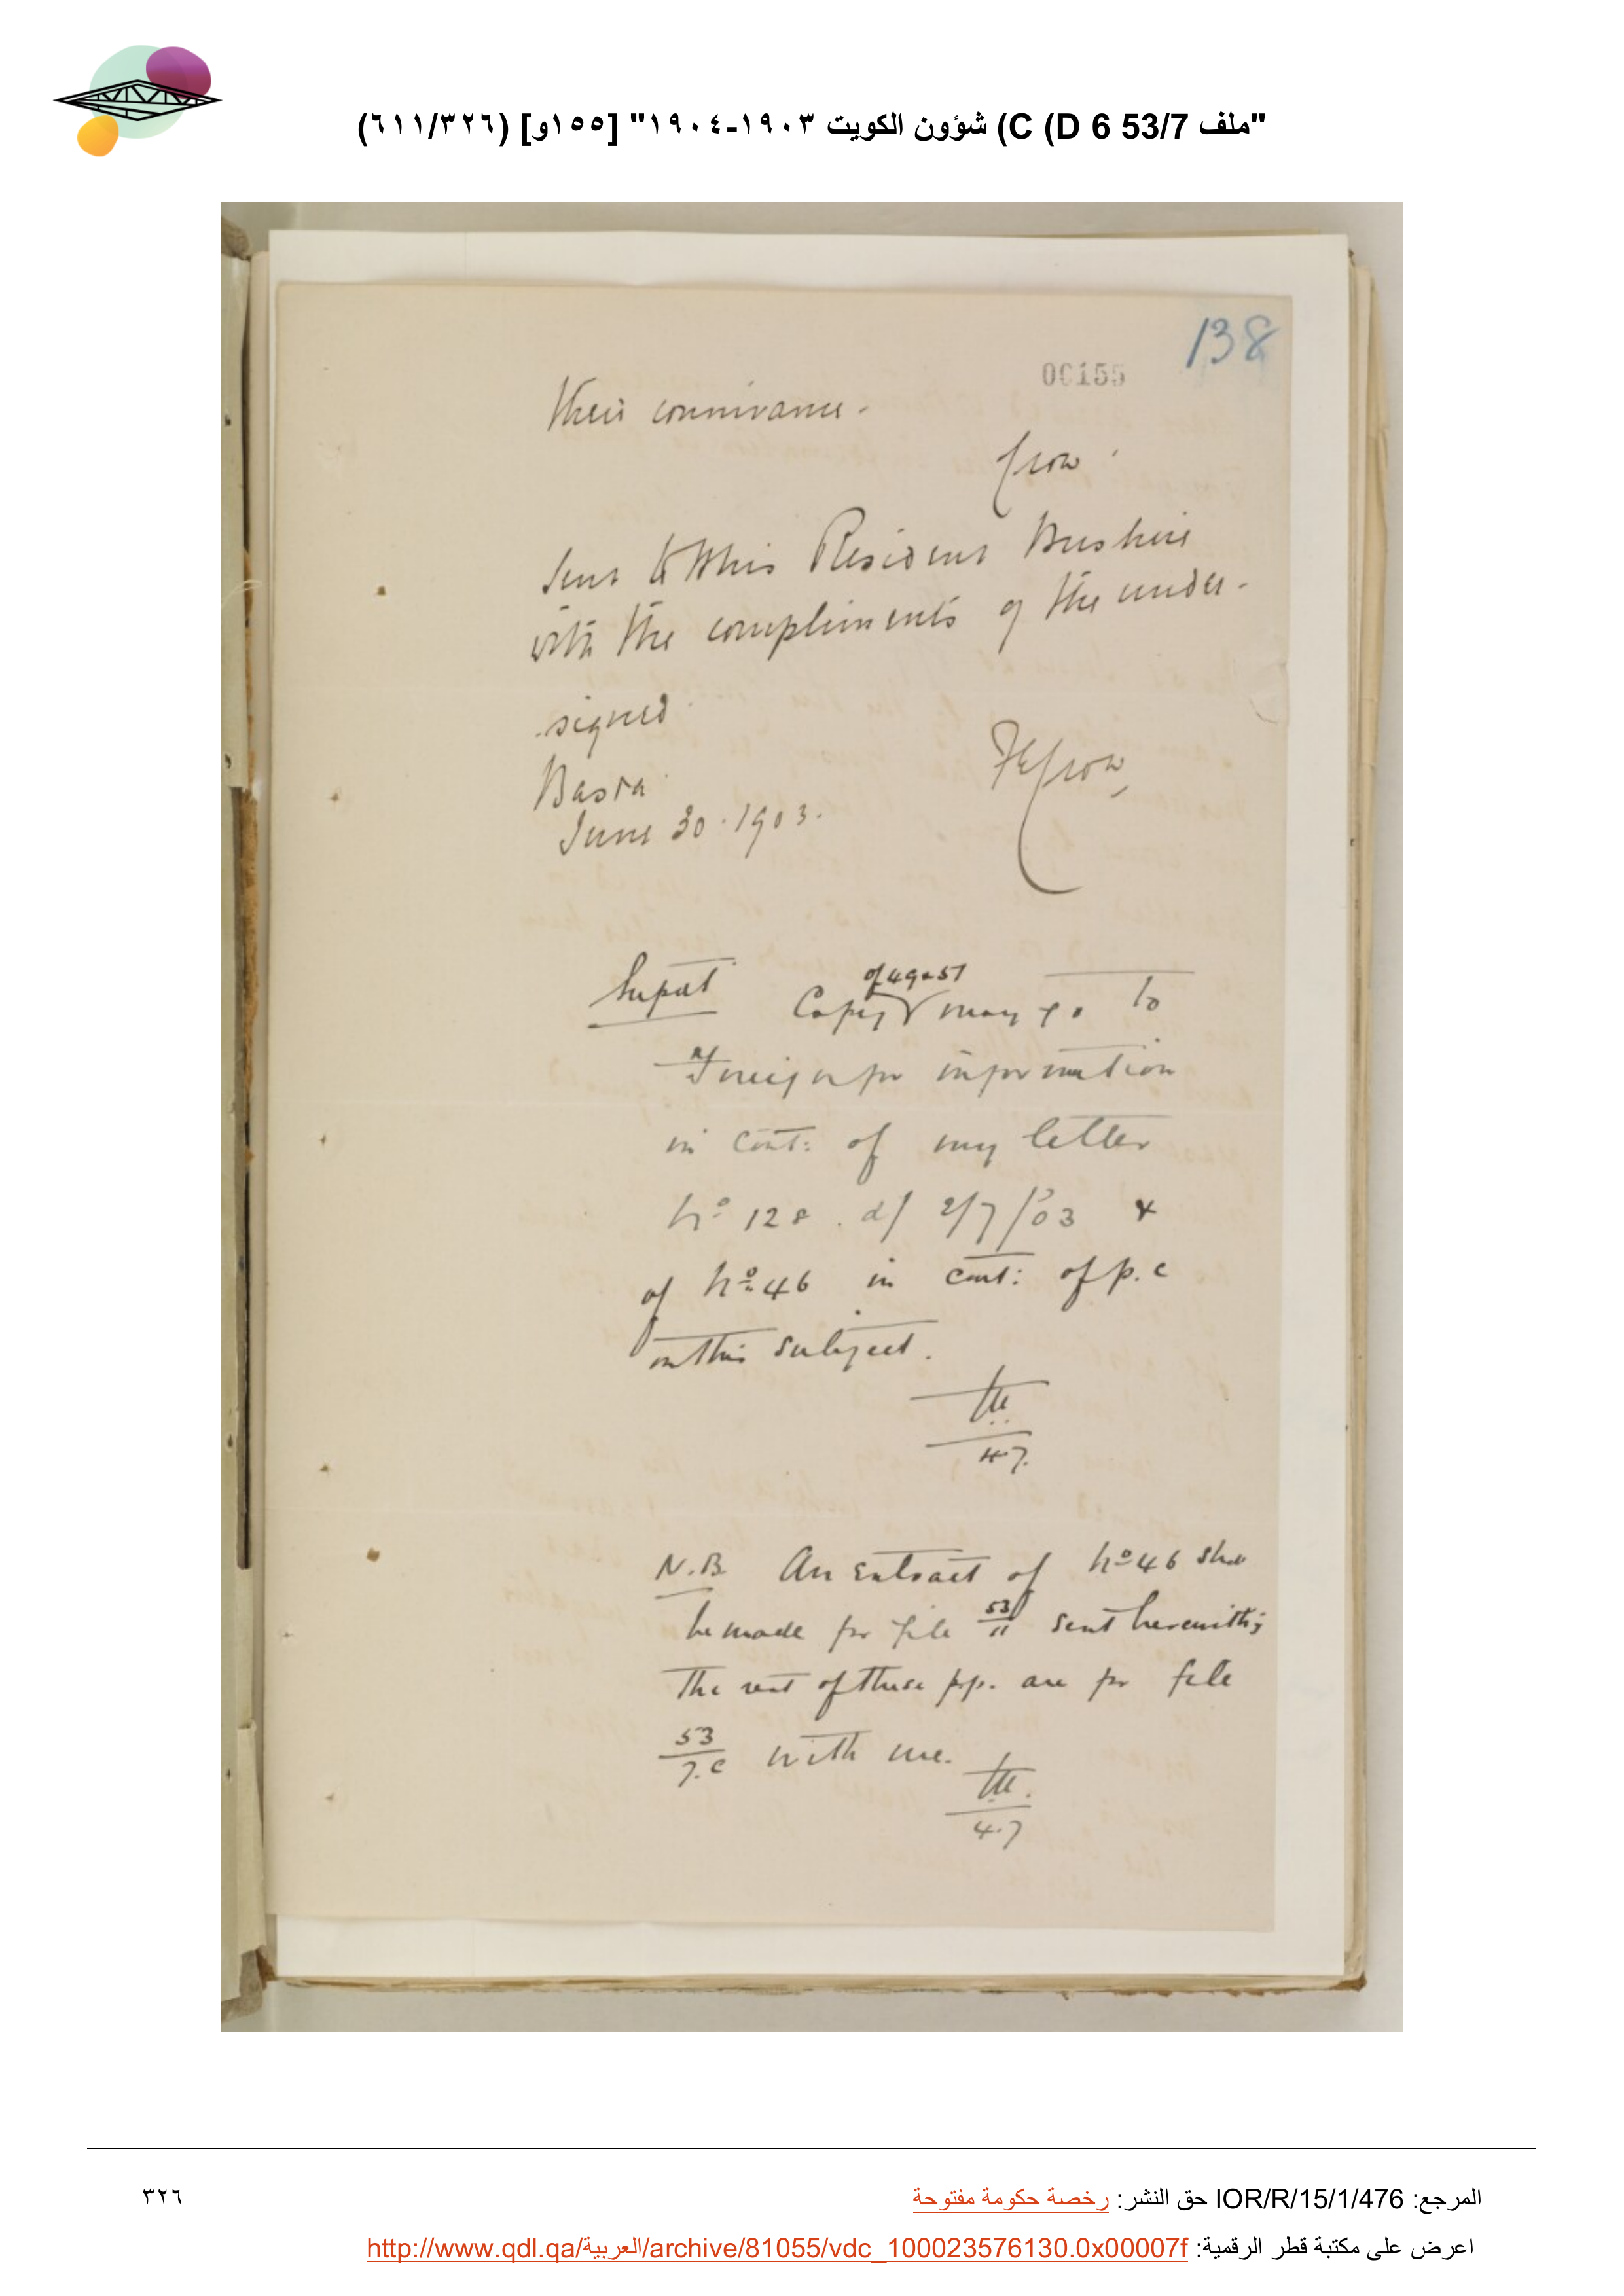 "ملف 53/7 D 6) C) شؤون الكويت ١٩٠٣-١٩٠٤" [١٥٥و] (٦١١/٣٢٦)
138
00155
their connivance.
Crow.
Sent to the Resident Bushire
with the compliments of the under-
signed
FECrow
Basra
June 30. 1903.
Supdt
of 49 & 51
Copy may go to
Foreign for information
in cont: of my letter
No 128. d/ 2/7/03 &
of No 46 in cont: of p.c
on this subject.
4.7.
N.B. An extract of No 46 shd
be made for file 53/11 sent herewith;
The rest of these pp. are for file
53/7.C with me.
4.7
المرجع: IOR/R/15/1/476 حق النشر: رخصة حكومة مفتوحة
٣٢٦
اعرض على مكتبة قطر الرقمية: http://www.qdl.qa/العربية/archive/81055/vdc_100023576130.0x00007f